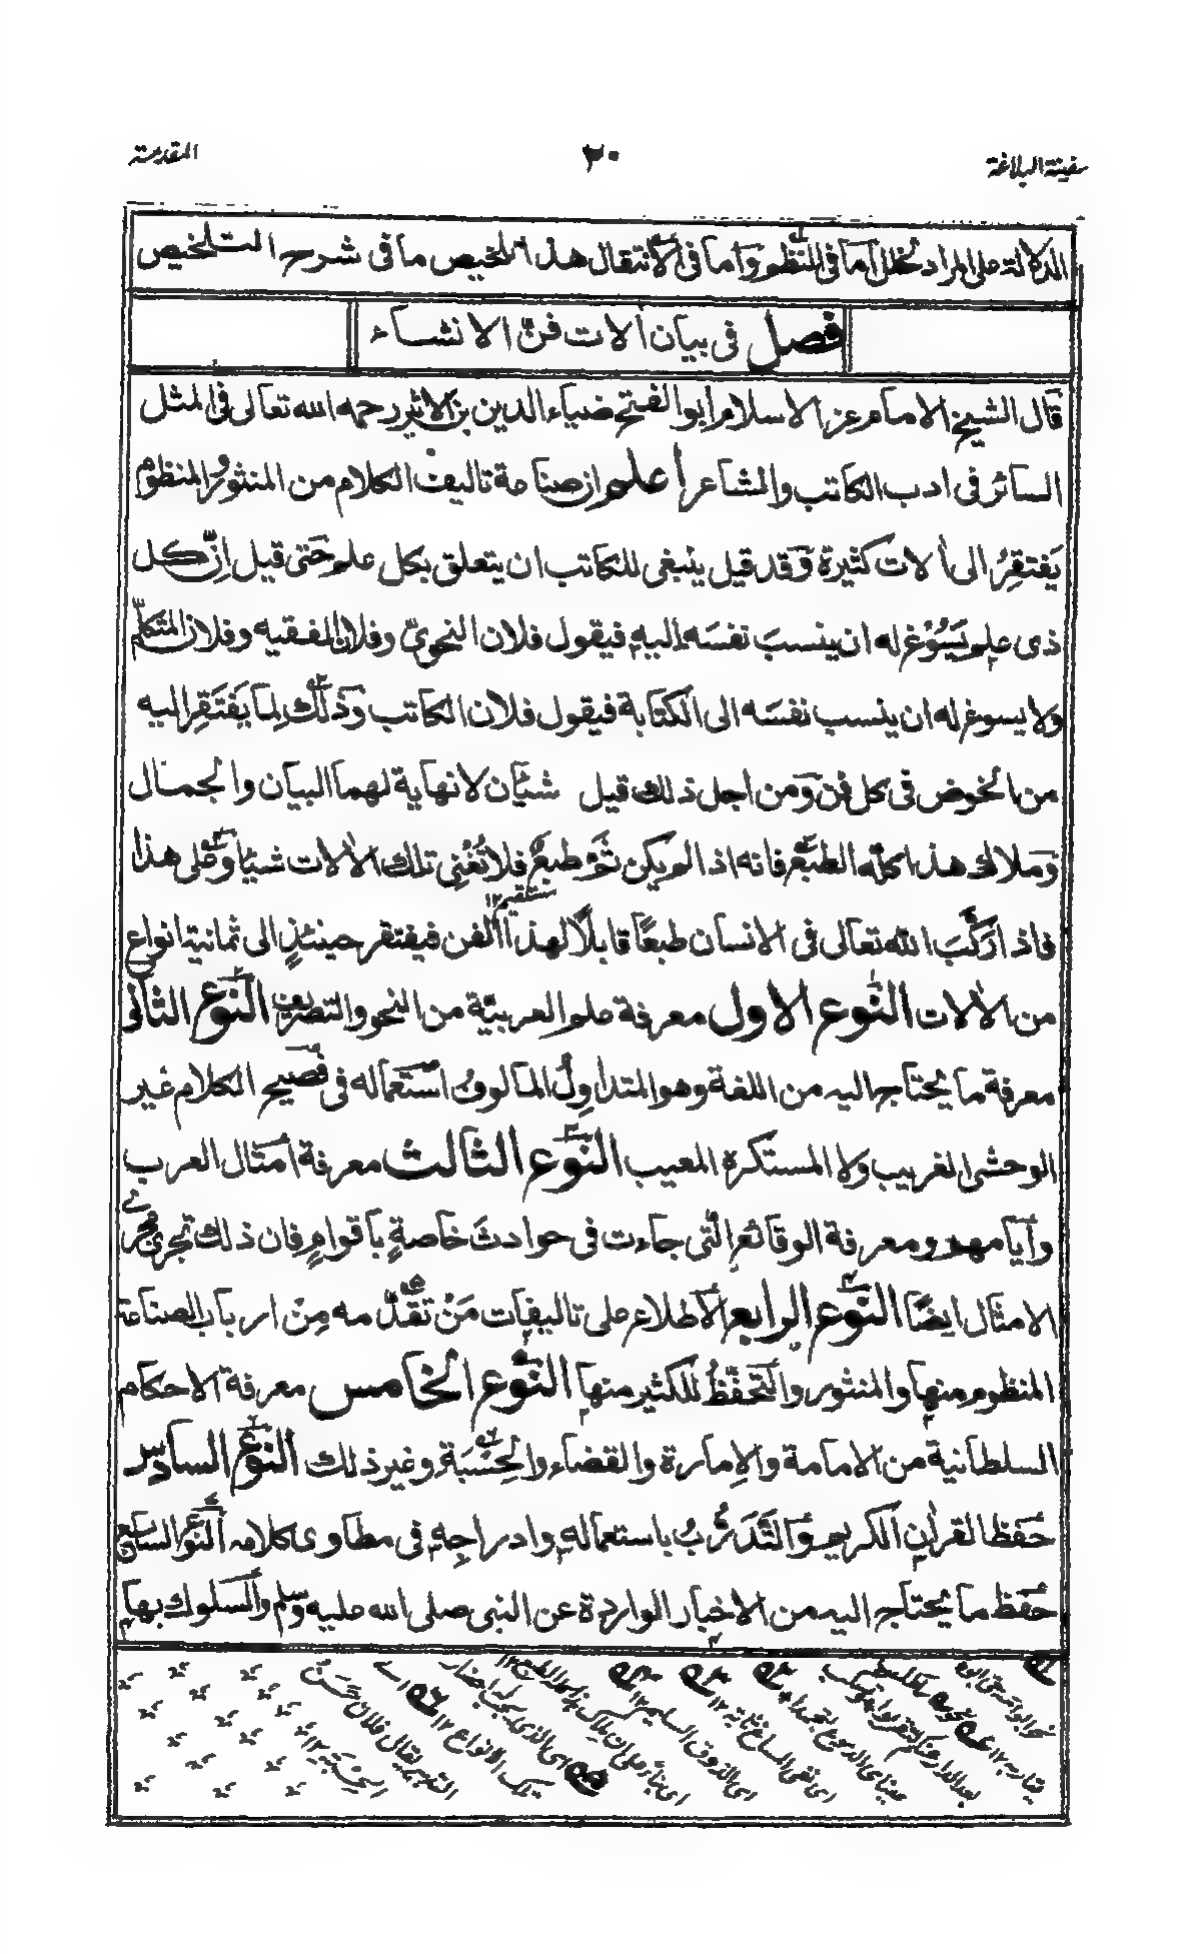 سفينة البلاغة
٢٠
المقدمة
الدلالة على المراد لخلل اما فى النظم واما فى الانتقال هذا تلخيص ما فى شرح التلخيص
فصل فى بيان الات فنّ الانشاء
قال الشيخ الامام عز الاسلام ابو الفتح ضياء الدين بن الاثير رحمه الله تعالى فى المثل
السائر فى ادب الكاتب والشاعر أعلم ان صناعة تاليف الكلام من المنثور والمنظوم
يَفتقِرُ الى الات كثيرة وَقد قيل ينبغى للكاتب ان يتعلق بكل علم حَتى قيل اِنّ كل
ذى علم يَسُوْغ له ان ينسبَ نفسَه اليه فيقول فلان النحوىّ وفلان الفقيه وفلان المتكلّم
ولا يسوغ له ان ينسب نفسَه الى الكتابة فيقول فلان الكاتب وَذلك لِما يَفتَقِر اليه
من الخوض فى كل فن وَمن اجل ذلك قيل شيئان لا نهاية لهما البيان والجمال
وَملاك هذا كلّه الطبع فانه اذا لم يكن ثَمَّ طبعٌ فلا تُغْنِى تلك الالات شيئا وَعلى هذا
فاذا ركَّبَ الله تعالى فى الانسان طبعًا قابلًا لهذا الفن فيفتقر حينئذٍ الى ثمانية انواع
من الالات النّوع الاول معرفة علم العربيّة من النحو والتصريف النّوع الثانى
معرفة ما يُحتاج اليه من اللغة وهو المتداوِلُ المالوفُ استعماله فى فصيح الكلام غير
الوحشى الغريب ولا المستكره المعيب النّوع الثالث معرفة امثال العرب
وأيامهم ومعرفة الوقائع الّتى جاءت فى حوادثَ خاصةٍ باقوامٍ فان ذلك تجرى مجرى
الامثال ايضًا النّوع الرابع الاطلاع على تاليفات مَنْ تقدّمه مِنْ ارباب الصناعة
المنظوم منها والمنثور والتّحفّظُ للكثير منها النّوع الخامس معرفة الاحكام
السلطانية من الامامة والاِمارة والقضاء والحِسْبَة وغير ذلك النّوع السادس
حفظ القراٰن الكريم والتَّدَرُّبُ باستعماله وادراجِه فى مطاوى كلامه النّوع السابع
حفظ ما يُحتاج اليه من الاخبار الواردة عن النبى صلى الله عليه وسلم والسلوك بها